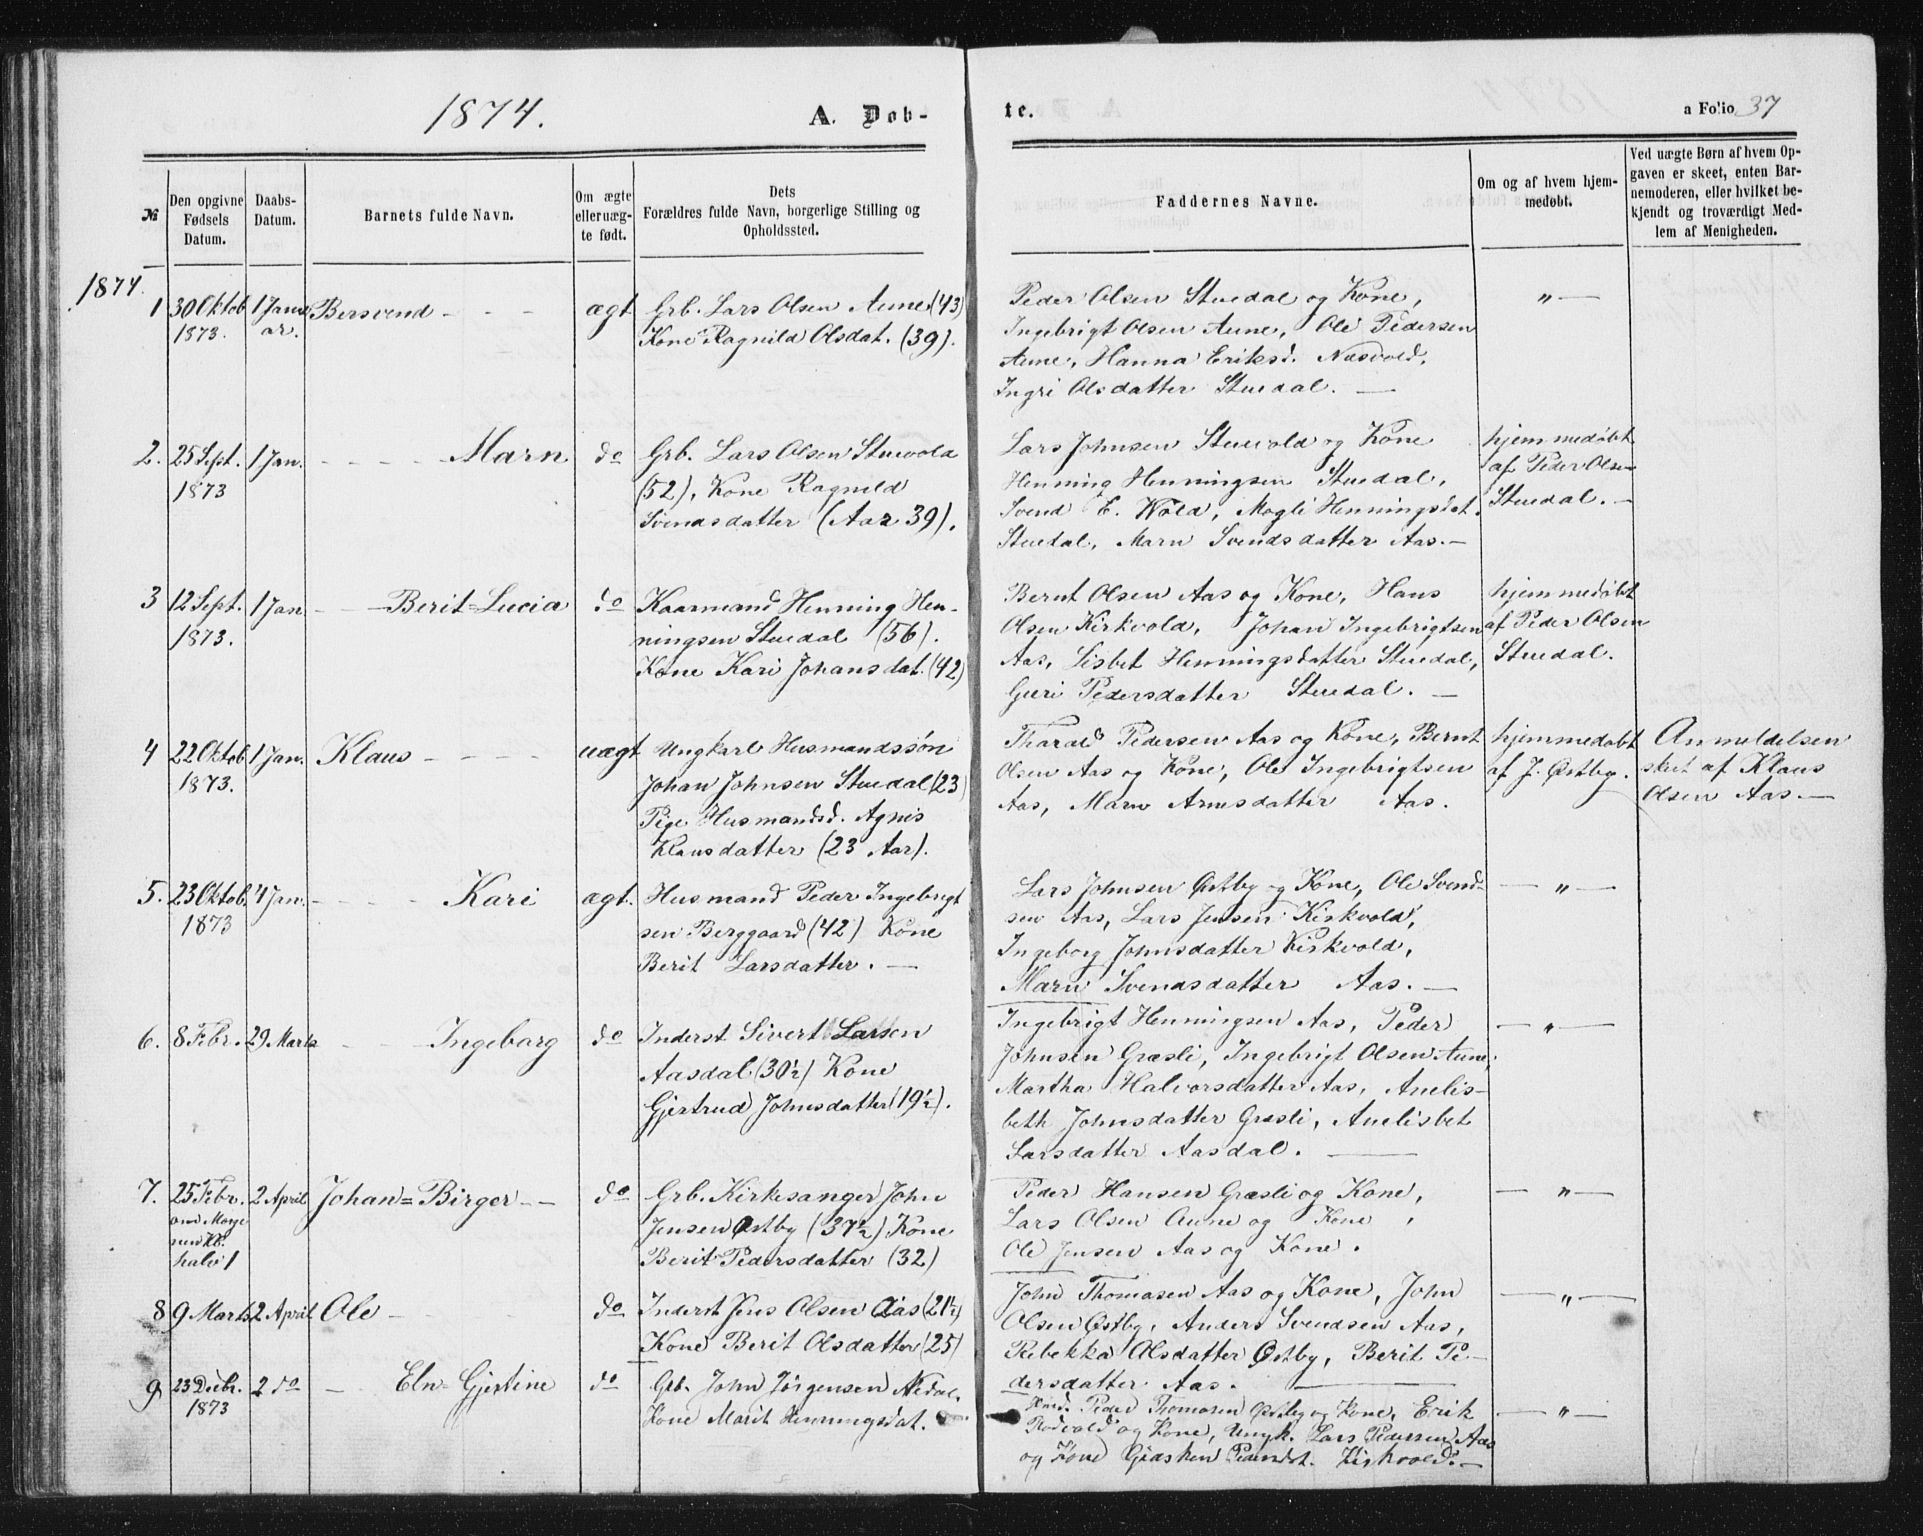 1874.
A. Døb-
te.
a Folio 37
№
Den opgivne Fødsels Datum.
Daabs-Datum.
Barnets fulde Navn.
Om ægte eller uæg-te født.
Dets Forældres fulde Navn, borgerlige Stilling og Opholdssted.
Faddernes Navne.
Om og af hvem hjem-medøbt.
Ved uægte Børn af hvem Op-gaven er skeet, enten Bar-nemoderen, eller hvilket be-kjendt og troværdigt Med-lem af Menigheden.
1874.
1 30 Oktob 1873. 1 Janu ar. Bersvend - - - ægt
Grb. Lars Olsen Aune (43)
Kone Ragnild Olsdat. (39).
Peder Olsen Stuedal og Kone,
Ingebrigt Olsen Aune, Ole Pedersen
Aune, Hanna Eriksd. Næsvold,
Ingri Olsdatter Stuedal. —
" —
2. 25 Sept. 1873 1 Jan. - - - - Marn do
Grb. Lars Olsen Stuevold
(52), Kone Ragnild
Svendsdatter (Aar 39).
Lars Johnsen Stuevold og Kone
Henning Henningsen Stuedal,
Svend E. Wold, Magli Henningsdat.
Stuedal, Marn Svendsdatter Aas. —
hjemmedøbt
af Peder Olsen
Stuedal. —
3 12 Sept. 1873. 1 Jan - - Berit=Lucia do
Kaarmand Henning Hen-
ningsen Stuedal (56).
Kone Kari Johansdat. (42)
Bernt Olsen Aas og Kone, Hans
Olsen Kirkvold, Johan Ingebrigtsen
Aas, Lisbet Henningsdatter Stuedal,
Guri Pedersdatter Stuedal. —
hjemmedøbt
af Peder Olsen
Stuedal.
4 22 Oktob 1873. 1 Jan. Klaus - - - - uægt
Ungkarl Husmandssøn
Johan Johnsen Stuedal (23)
Pige Husmandsd. Agnis
Klausdatter (23 Aar).
Tharald Pedersen Aas og Kone, Bernt
Olsen Aas og Kone, Ole Ingebrigtsen
Aas, Marn Arnesdatter Aas.
hjemmedøbt
af J. Østby.
Anmeldelsen
skeet af Klaus
Olsen Aas. —
5. 23 Oktob. 1873 4 Jan. - - - - Kari ægt.
Husmand Peder Ingebrigt
sen Berggaard (42) Kone
Berit Larsdatter. —
Lars Johnsen Østby og Kone, Ole Svend-
sen Aas, Lars Jensen Kirkvold,
Ingeborg Johnsdatter Kirkvold,
Marn Svendsdatter Aas. —
— " —
6. 8 Febr. 29 Marts - - - Ingeborg do
Inderst Sivert Larsen
Aasdal (30½) Kone
Gjertrud Johnsdatter (19½).
Ingebrigt Henningsen Aas, Peder
Johnsen Græsli, Ingebrigt Olsen Aune,
Martha Halvorsdatter Aas, Anelis-
beth Johnsdatter Græsli, Anelisbet
Larsdatter Aasdal. —
— " —
7. 25 Febr. om Morge nen Kl. halv 1 2 April Johan=Birger - - do
Grb. Kirkesanger John
Jensen Østby (37½) Kone
Berit Pedersdatter (32)
Peder Hansen Græsli og Kone,
Lars Olsen Aune og Kone,
Ole Jensen Aas og Kone.
— " —
8 9 Marts 2 April Ole - do
Inderst Jens Olsen Aas (21½)
Kone Berit Olsdatter (25)
John Thomasen Aas og Kone, John
Olsen Østby, Anders Svendsen Aas,
Rebekka Olsdatter Østby, Berit Pe-
dersdatter Aas. —
— " —
9 23 Decbr. 1873 2 do - Eln=Gjertine do
Grb. John Jörgensen Nedal.
Kone Marit Henningsdat.
Husd. Peder Thomasen Østby og Kone, Erik
Rodvold og Kone, Ungk. Lars Pedersen Aas
og Kone Gidsken Pedersdt. Kirkvold. —
— " —